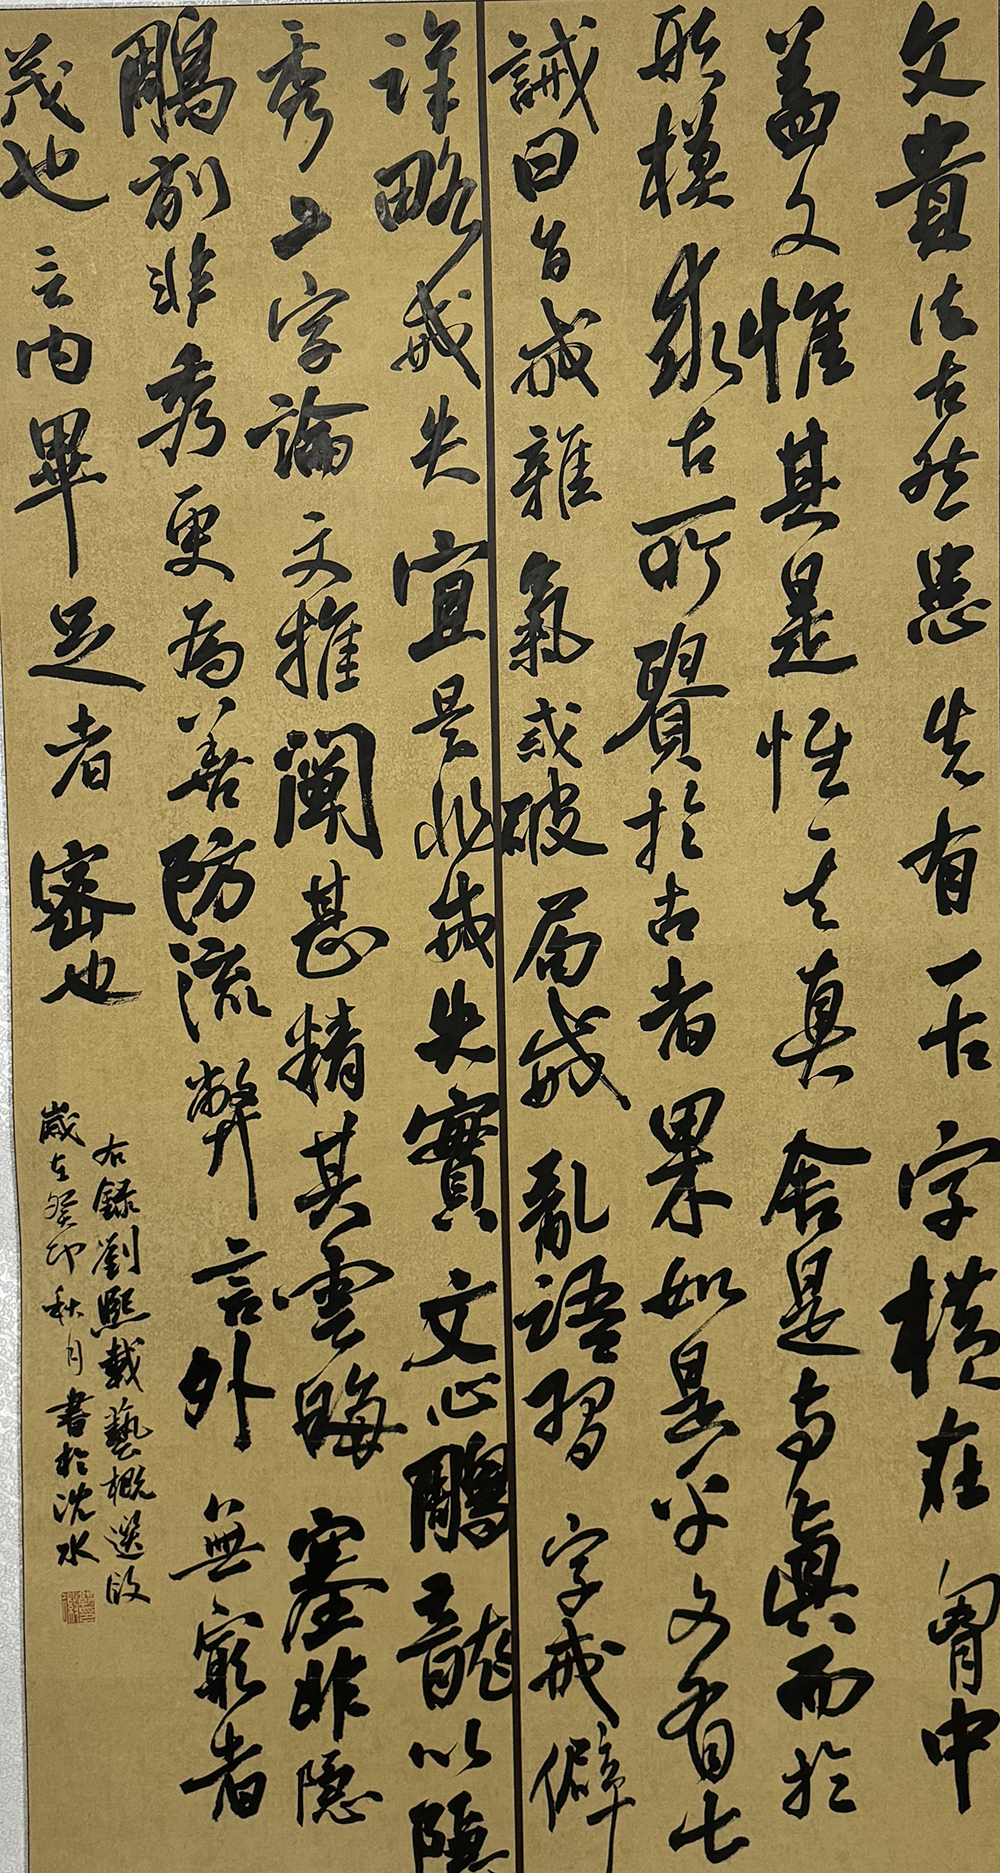 文貴法古然患先有一古字横在胷中
蓋文惟其是惟其真舍是与真而於
形模求古所賢於古者果如是乎文有七
誡曰旨戒雜氣戒破局戒亂語習字戒僻
詳略戒失宜是非戒失實文心鵰龍以隱
秀二字論文推闡甚精其雲晦塞非隱
鵰削非秀更為善防流弊言外無窮者
茂也言内畢足者密也
右録劉熙載藝概選段
歲在癸卯秋月書於沈水